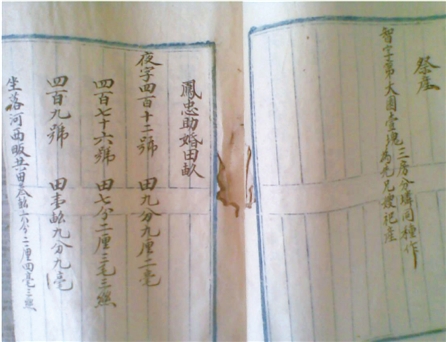 祭産
智字第大圓壹塊三房分購同種作
為光兄禮祀産
鳳忠助婚田畝
夜字四百十二號 田九分九厘二毫
四百七十六號 田七分二厘三毛三絲
四百九號 田壹畝九分九毫
坐落河西畈共田叁畝六分二厘四毫三絲